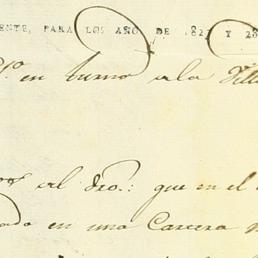 ENTE, PARA LOS AÑO DE 182 Y 28
en turno a la Villa
al dro.: que en el
en una Carcera